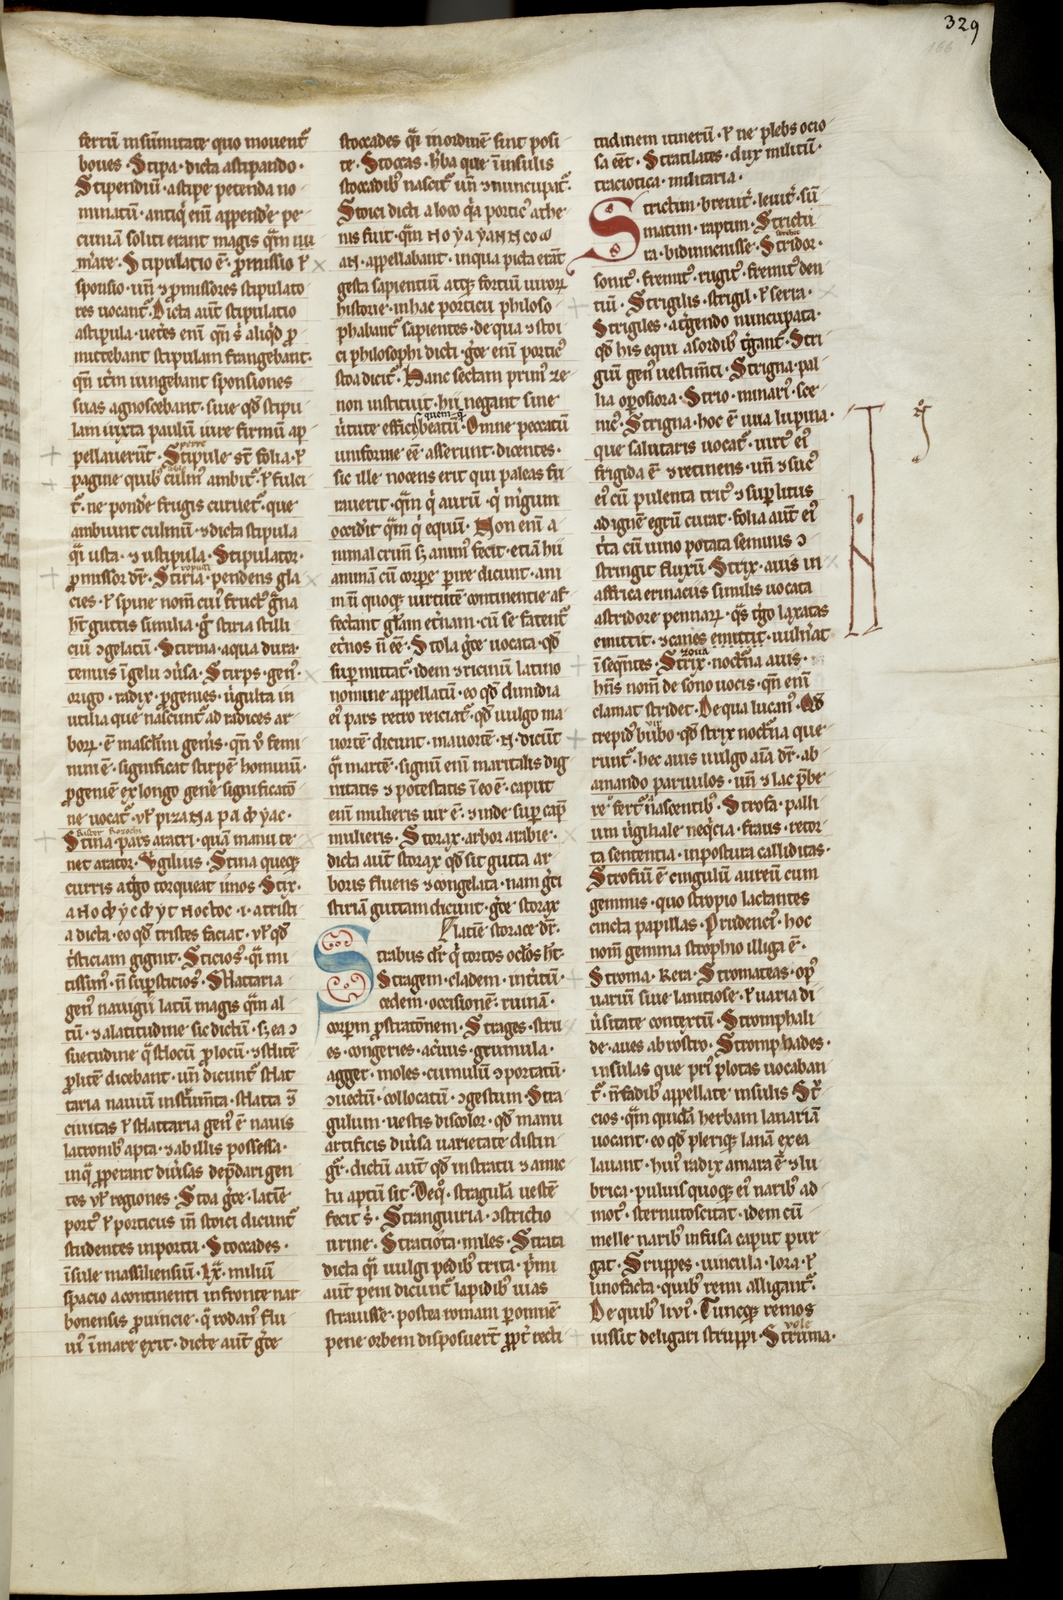 329
166
ferrū in sūmitate quo mouent᷑
boues · Stipa · dicta a stipando ·
Stipendiū · a stipe petenda no
minatū · antiq̇ enī appende᷑ pe
cuniā soliti erant magis qͣm nu
m̄are · Stipulatio ē · ꝓmissio ł
sponsio · un̄ ⁊ ꝓmissores stipulato
res uocant᷑ · Dicta aut̄ stipulatio
a stipula · uet̄es enī qn̄ s̄ aliq̇d ꝓ
mittebant stipulam frangebant ·
qn̄ it̄m iungebant sponsiones
suas agnoscebant · siue qd̄ stipu
lam iuxta paulū iure firmū ap
pellauerūt · Stipule st̄ folia · ł
pagine quibꝰ culmꝰ ambit᷑ · ł fulci
t᷑ · ne ponde᷑ frugis curuet᷑ · que
ambiunt culmū · ⁊ dicta stipula
q̄i usta · ⁊ ustipula · Stipulator ·
ꝓmissor dr̄ · Stiria · pendens gla
cies · ł spine nom̄ cuiꝰ fructꝰ gͣna
hn̄t guttis similia · gͦ stiria stilli
ciū ↄgelatū · Stirma · aqua dura
temuis ī gelu ↄūsa · Stirps · genꝰ ·
origo · radix · ꝓgenies · uͥgulta in
utilia que nascunt᷑ ad radices ar
boꝝ · ē mascl̄ini gen̄is · qn̄ ū femi
nini ē · significat stirpē hominū ·
ꝓgeniē ex longo gene᷑ significatō
ne uocat᷑
Stiua · pars aratri · quā manu te
net arator · Ūgilius · Stiua queqꝫ
currus a tͣgo torqueat imos · Stix ·
· i · a tristi
a dicta · eo qd̄ tristes faciat · ul̄ qd̄
tͥsticiam gignit · Sticiosꝰ · q̄i mi
tissimꝰ · n̄ suꝑsticiosꝰ · Slattaria
genꝰ nauigii latū magis qͣm al
tū · ⁊ a latitudine sic dictū · sꝫ ea ↄ
suetudine qͣ slocū ꝓ locū · ⁊ slitē
ꝓ litē dicebant · un̄ dicunt᷑ slat
taria nauiū instrum̄ta · Slatta ē
ciuitas ł slattaria genꝰ ē nauis
latronibꝰ apta · ⁊ ab illis possessa ·
inq̇ ꝓꝑant diu̇sas dep̄dari gen
tes ul̄ regiones · Stoa gͨe · latīe
portꝰ ł porticus īn stoici dicunt᷑
studentes in portu · Stocades ·
īsule massiliensiū · Lx · miliū
spacio a continenti in fronte nar
bonensis ꝓuincie · qͣ rodanꝰ flu
uiꝰ ī mare exit · dicte aut̄ gͨe
stoccades q̄i in ordinē sint posi
te · Stoccas · h̄ba que ī insulis
stoccadibꝰ nascit᷑ un̄ ⁊ nuncupat᷑ ·
Stoici dicti a loco qͥa porticꝰ athe
nis fuit · qͣm
appellabant · in qua picta erāt
gesta sapientiū atqꝫ fortiū uiroꝝ
historie · in hac porticu philoso
phabant᷑ sapientes · de qua ⁊ stoi
ci philosophi dicti · gͨe enī porticꝰ
stoa dicit᷑ · Hanc sectam primꝰ ze
non instituit · hii negant sine
uͥtute effici beatū · Omne peccatū
uniforme eē asserunt · dicentes ·
sic ille nocens erit qui paleas fu
rauerit · qͣm q̇ aurū · q̇ m̄gum
occidit qͣm q̇ equū · Non enī a
nimal crimī sꝫ animꝰ fecit · etiā hii
animā cū corpe᷑ ꝑire dicunt · ani
m̄ n̄ quoqꝫ uirtutē continentie af
fectant gl̄am et̄nam · cū se fatent᷑
et̄nos n̄ eē · Stola gͨe uocata · qd̄
suꝑmittat᷑ · idem ⁊ ricinū latino
nomine appellatū · eo qd̄ dimidia
eiꝰ pars retro reiciat᷑ · qd̄ uulgo ma
uortē dicunt · mauortē · n̄ · dicūt
q̄i martē · signū enī maritalis dig
nitatis ⁊ potestatis ī eo ē · caput
enī mulieris uir ē · ⁊ inde suꝑ capᷓ
mulieris · Storax · arbor arabie ·
dicta aut̄ storax qd̄ sit gutta ar
boris fluens ⁊ congelata · nam gͨci
stiriā guttam dicunt · gͨe storax
latīe storace dr̄ ·
Strabus dr̄ q̇ tortos oclo̅s ht̄ ·
Stragem · cladem · int̄itū ·
cedem · occisionē · ruinā ·
corpm̄ ꝓstratōnem · Strages · stru
es · congeries · ac̄uus · grumula ·
agger · moles · cumulū ↄportatū ·
ↄuectū · collocatū · ↄgestum · Stra
gulum · uestis discolor · qd̄ manu
artificis diu̇sa uarietate distin
gr̄ · dictū aut̄ qd̄ in stratu ⁊ amic
tu aptū sit · Deqꝰ · stragulā uestē
fecit s̄ · Stranguiria · ↄstrictio
urine · Stratiōta · miles · Strata
dicta q̄i uulgi pedibꝰ trita · pͥmi
aut̄ peni dicunt᷑ lapidibꝰ uias
strauisse · postea romani ꝑ omnē
pene orbem disposuert̄ ꝓpt̄ recti
tudinem itinerū · ł ne plebs ocio
sa eēt · Stratilates · dux militū ·
traciotica · militaria ·
Strictim · breuit᷑ · leuit᷑ · sū
matim · raptim · Strictu
ra · bidinucisse · Stridor ·
sonitꝰ · fremitꝰ · rugitꝰ · fremitꝰ den
tiū · Strigilis · strigil · ł seria ·
Strigiles · a tͣgendo nuncupata ·
qd̄ his equi a sordibꝰ tͣgant᷑ · Stri
giū genꝰ uestim̄ti · Strigna · pal
lia opͦsiora · Strio · minariꝰ · sce
nicꝰ · Strigna · hoc ē uua lupina ·
que salutaris uocat᷑ · uirtꝰ eiꝰ
frigida ē ⁊ retinens · un̄ ⁊ sucꝰ
eiꝰ cū pulenta tritꝰ ⁊ suꝑlitus
ad ignē egrū curat · folia aut̄ eiꝰ
tͥta cū uino potata seminis ↄ
stringit fluxū · Strix · auis in
affrica erinacius similis uocata
a stridore pennaꝝ · qͣs tͣgo laxatas
emittit · ⁊ canes emittit · uuln̄at
ī seqn̄tes · Strix · noct̄na auis ·
hn̄s nom̄ de sono uocis · qn̄ enī
clamat stridet · De qua lucanꝰ · Qd̄
trepidꝰ bubo · qd̄ strix noct̄na que
runt᷑ · hec auis uulgo aīa dr̄ · ab
amando paruulos · un̄ ⁊ lac p̄be
re fert᷑ nascentibꝰ · Strofa · palli
um uͥginale · neq̇cia · fraus · retor
ta sententia · inpostura calliditas ·
Strofiū ē cingulū aureū cum
gemmis · quo stropio lactantes
cincta papillas · Prudenciꝰ · hoc
nom̄ gemma strophio illiga ē ·
Stroma · Kera · Stromateas · opꝰ
uariū siue lanitiose · ł uaria di
uͥsitate contextū · Stromphali
de · aues ab rostro · Stromphades ·
insulas que priꝰ plotas uocaban
t᷑ · n̄ stadibꝰ appellate insulis · St̄
cios · qͣm quidā herbam lanariā
uocant · eo qd̄ pleriqꝫ lanā ex ea
lauant · huiꝰ radix amara ē · ⁊ lu
brica · puluis quoqꝫ eiꝰ naribꝰ ad
motꝰ · sternuto͛ citat · idem cū
melle naribꝰ infusa caput pur
gat · Struppes · uincula · lora · ł
linofacta · quibꝰ remi alligant᷑ ·
De quibꝰ liuiꝰ · Tuncqꝫ remos
iussit deligari struppi · Struma ·